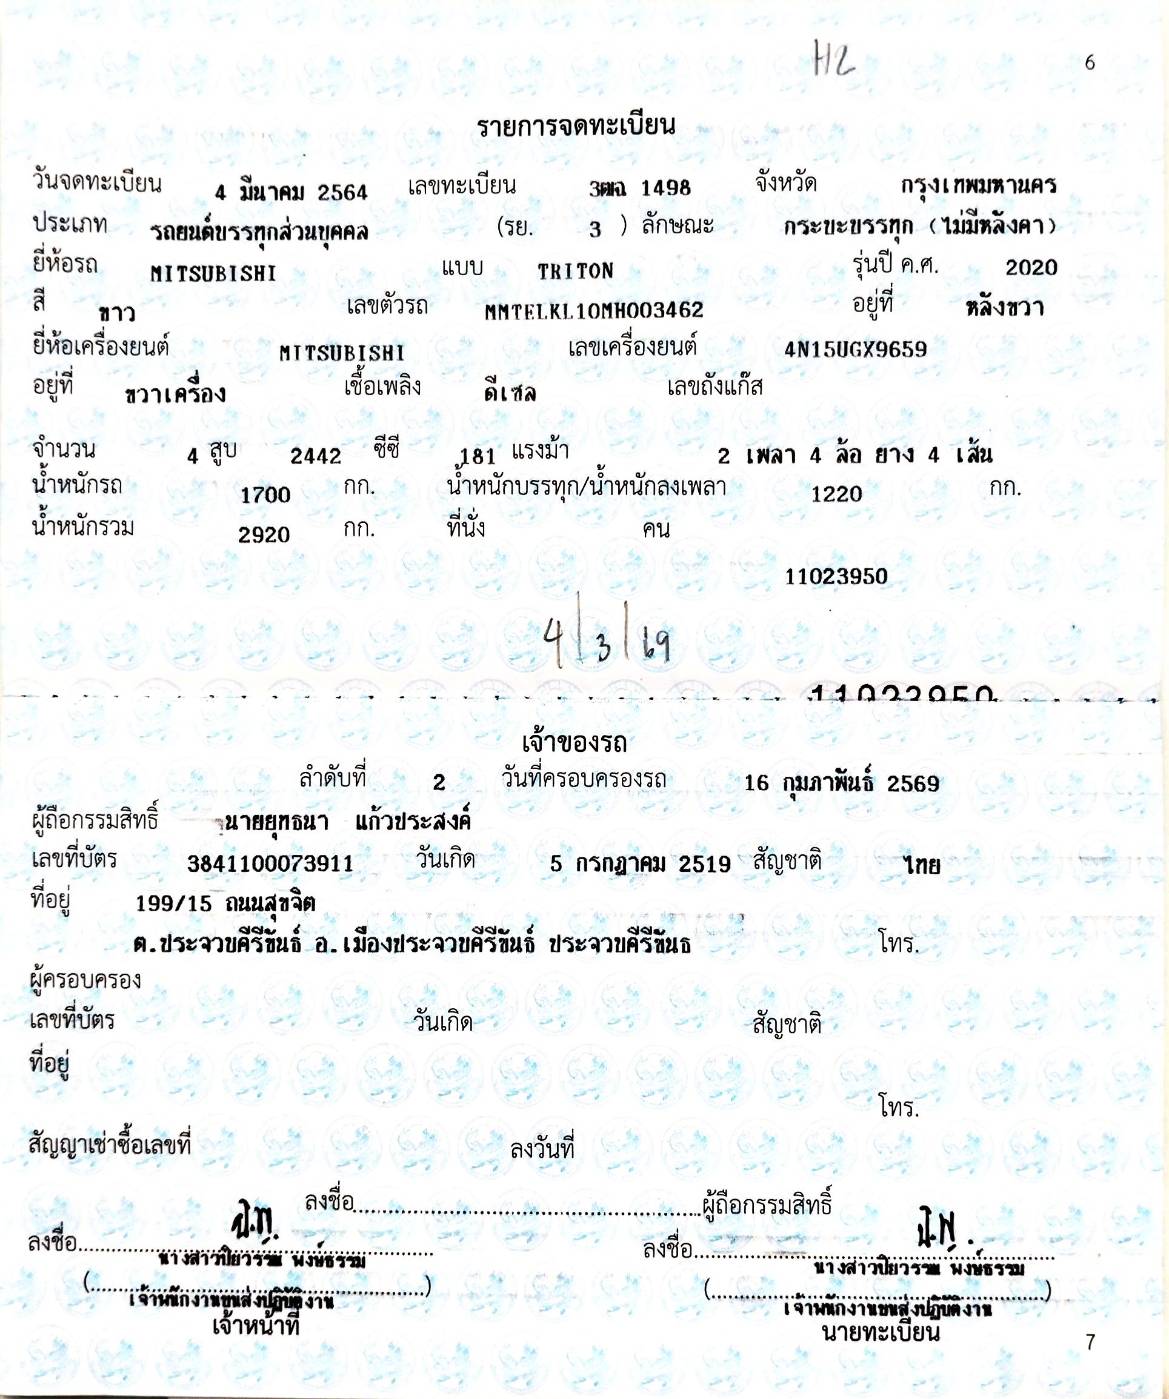 H2
6
รายการจดทะเบียน
วันจดทะเบียน 4 มีนาคม 2564 เลขทะเบียน 3ฒฉ 1498 จังหวัด กรุงเทพมหานคร
ประเภท รถยนต์บรรทุกส่วนบุคคล (รย. 3 ) ลักษณะ กระบะบรรทุก (ไม่มีหลังคา)
ยี่ห้อรถ MITSUBISHI แบบ TRITON รุ่นปี ค.ศ. 2020
สี ขาว เลขตัวรถ MMTELKL10MH003462 อยู่ที่ หลังขวา
ยี่ห้อเครื่องยนต์ MITSUBISHI เลขเครื่องยนต์ 4N15UGX9659
อยู่ที่ ขวาเครื่อง เชื้อเพลิง ดีเซล เลขถังแก๊ส
จำนวน 4 สูบ 2442 ซีซี 181 แรงม้า 2 เพลา 4 ล้อ ยาง 4 เส้น
น้ำหนักรถ 1700 กก. น้ำหนักบรรทุก/น้ำหนักลงเพลา 1220 กก.
น้ำหนักรวม 2920 กก. ที่นั่ง คน
11023950
4/3/69
11023950
เจ้าของรถ
ลำดับที่ 2 วันที่ครอบครองรถ 16 กุมภาพันธ์ 2569
ผู้ถือกรรมสิทธิ์ นายยุทธนา แก้วประสงค์
เลขที่บัตร 3841100073911 วันเกิด 5 กรกฎาคม 2519 สัญชาติ ไทย
ที่อยู่ 199/15 ถนนสุขจิต
ต.ประจวบคีรีขันธ์ อ.เมืองประจวบคีรีขันธ์ ประจวบคีรีขันธ โทร.
ผู้ครอบครอง
เลขที่บัตร วันเกิด สัญชาติ
ที่อยู่
โทร.
สัญญาเช่าซื้อเลขที่ ลงวันที่
ลงชื่อ ผู้ถือกรรมสิทธิ์
ลงชื่อ ลงชื่อ
นางสาวปิยวรรณ พงษ์ธรรม นางสาวปิยวรรณ พงษ์ธรรม
( ) ( )
เจ้าพนักงานขนส่งปฏิบัติงาน เจ้าพนักงานขนส่งปฏิบัติงาน
เจ้าหน้าที่ นายทะเบียน
7